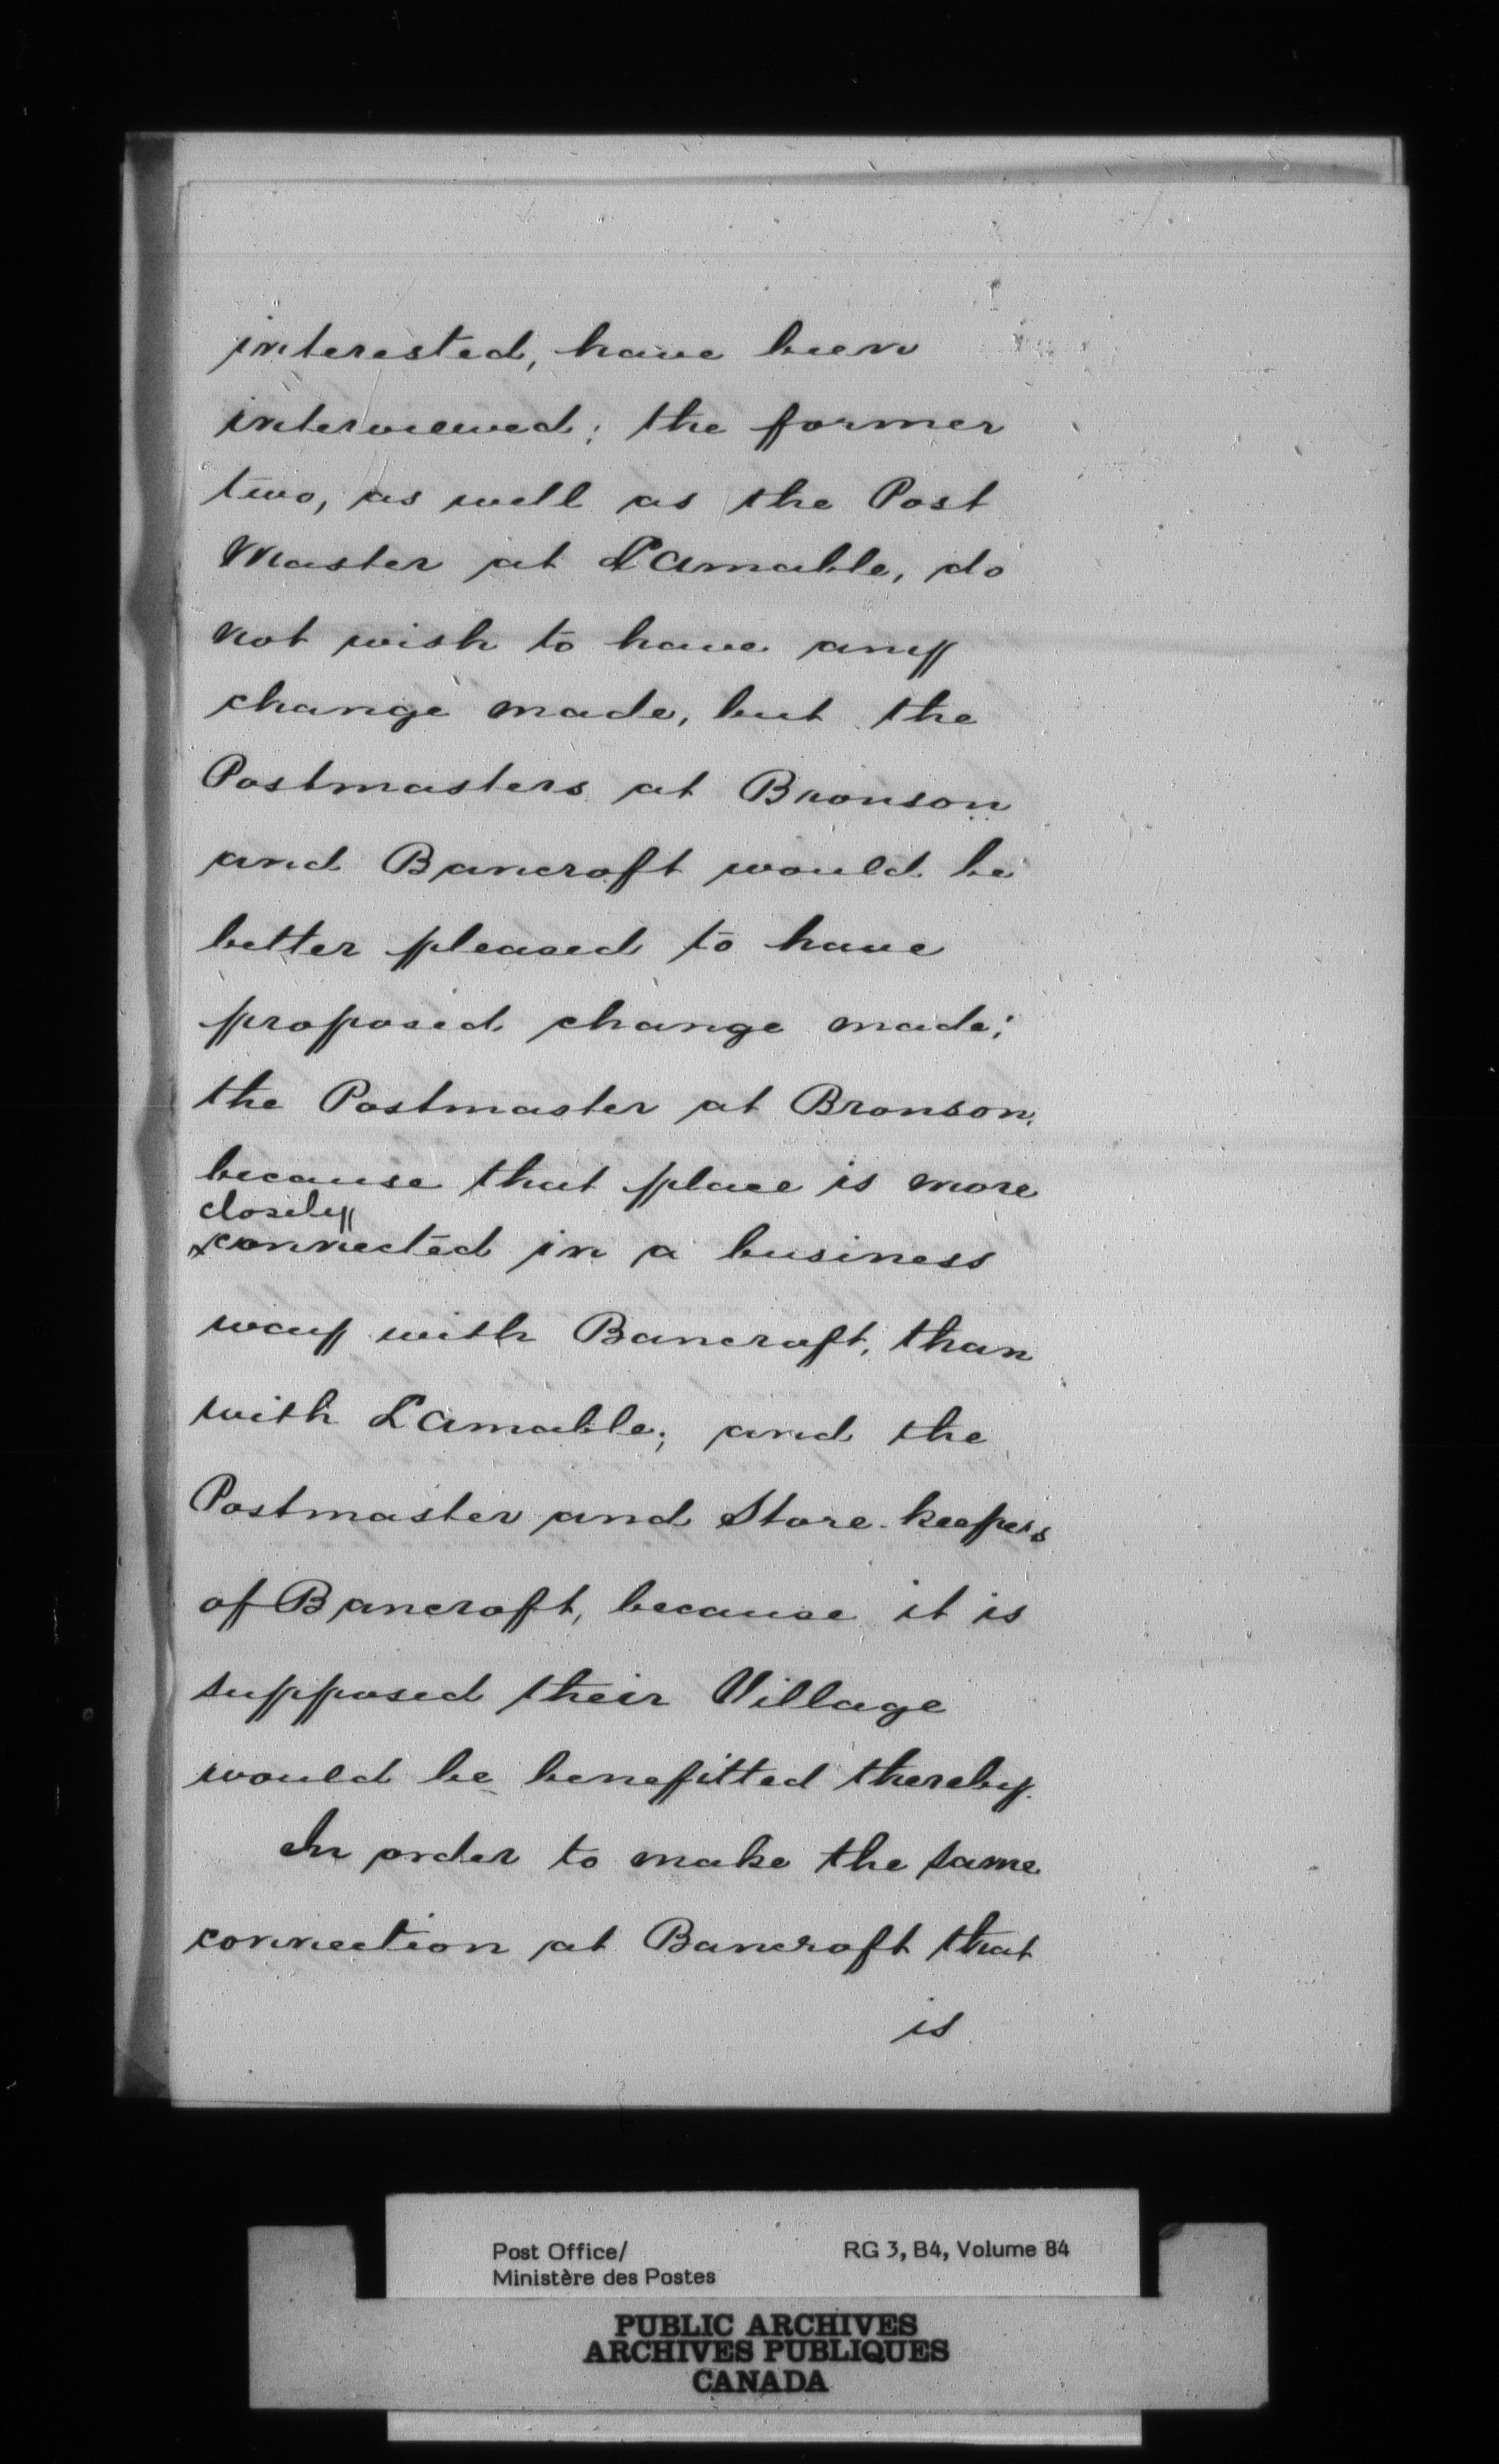 interested, have been
interviewed; the former
two, as well as the Post
Master at L'Amable, do
not wish to have any
change made, but the
Postmasters at Bronson
and Bancroft would be
better pleased to have
proposed change made;
the Postmaster at Bronson,
because that place is more
closely
connected in a business
way with Bancroft, than
with L'Amable; and the
Postmaster and Store-keepers
of Bancroft, because it is
supposed their Village
would be benefitted thereby.
In order to make the same
connection at Bancroft that
is
Post Office/
Ministère des Postes
RG 3, B4, Volume 84
PUBLIC ARCHIVES
ARCHIVES PUBLIQUES
CANADA